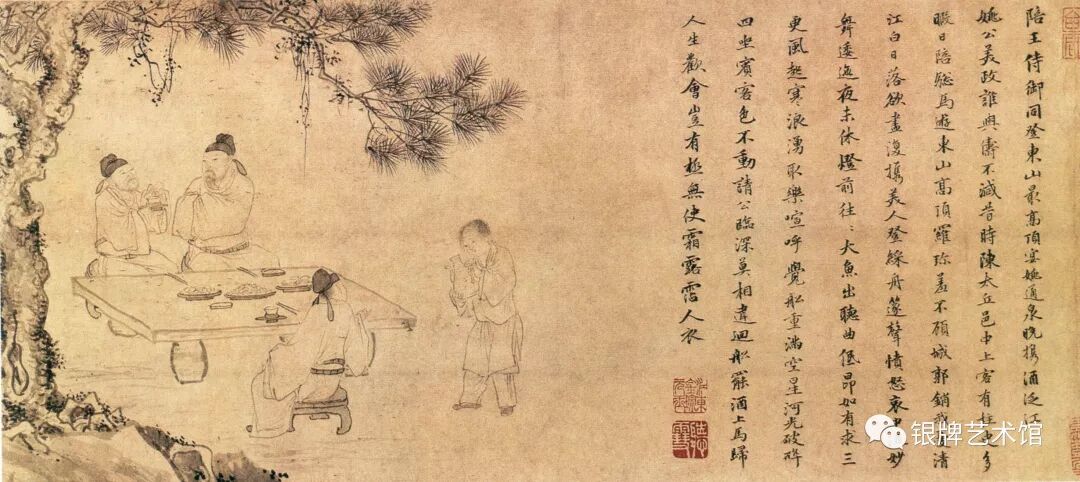 陪王侍御同登東山最高頂宴姚通泉晚携酒泛江
姚公美政誰與儔不減昔時陳太丘邑中上客有柱史多
暇日陪驄馬遊東山高頂羅珍羞不顧城郭銷我清
江白日落欲盡復携美人登綵舟篴聲憤怒哀中妙
舞逶迤夜未休燈前往〻大魚出聽曲低昂如有求三
更風起寒浪湧取樂喧呼覺舩重滿空星河光破碎
四坐賓客色不動請公臨深莫相違迴舩罷酒上馬歸
人生歡會豈有極無使霜露霑人衣
银牌艺术馆